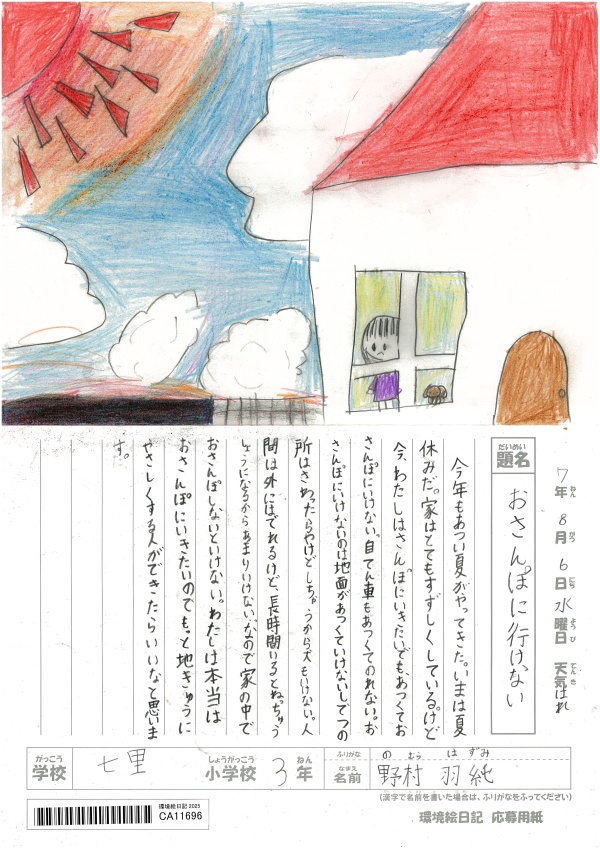 7年 8月 6日 水曜日 天気 はれ
ねん がつ にち ようび てんき
だいめい
題名
おさんぽに行けない
今年もあつい夏がやってきた。いまは夏
休みだ。家はとてもすずしくしている。けど
今、わたしはさんぽにいきたいでも、あつくてお
さんぽにいけない。自てん車もあつくてのれない。お
さんぽにいけないのは地面があつくていけないしてつの
所はさわったらやけどしちゃうから犬もいけない。人
間は外にはでれるけど、長時間いるとねっちゅう
しょうになるからあまりいけない。なので家の中で
おさんぽしないといけない。わたしは本当は
おさんぽにいきたいのでもっと地きゅうに
やさしくする人ができたらいいなと思いま
す。
がっこう
学校
七里
しょうがっこう
小学校
3年
ねん
ふりがな
の むら は ずみ
なまえ
名前
野村 羽純
(漢字で名前を書いた場合は、ふりがなをふってください)
環境絵日記 2025
CA11696
環境絵日記 応募用紙